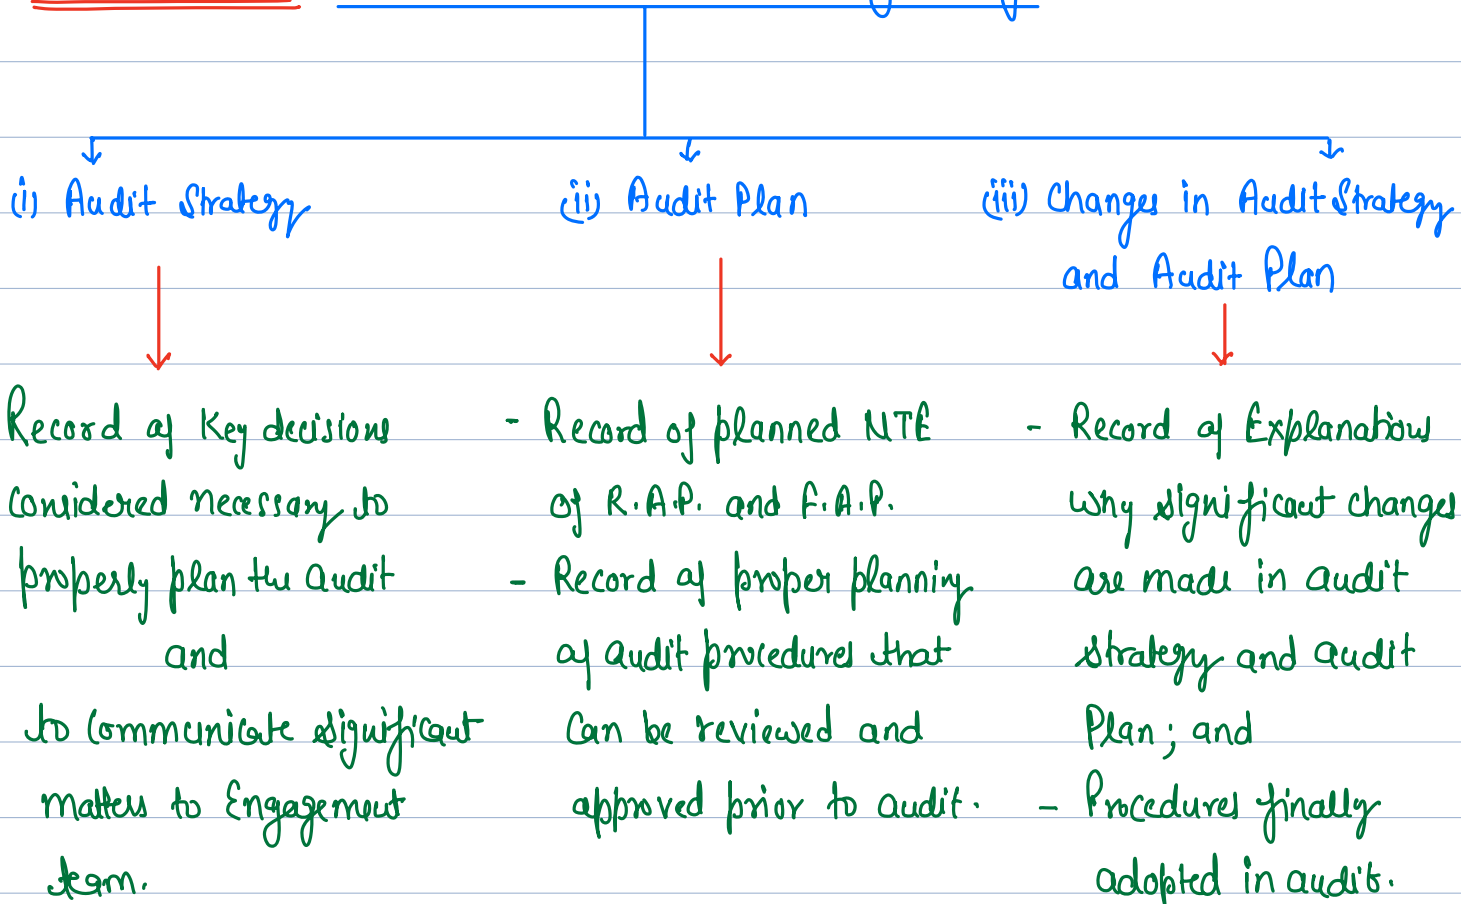 (i) Audit Strategy
Record of Key decisions
considered necessary to
properly plan the audit
and
to communicate significant
matters to Engagement
team.
(ii) Audit Plan
- Record of planned NTE
of R.A.P. and F.A.P.
- Record of proper planning
of audit procedures that
can be reviewed and
approved prior to audit.
(iii) Changes in Audit Strategy
and Audit Plan
- Record of Explanations
why significant changes
are made in audit
strategy and audit
Plan; and
- Procedures finally
adopted in audit.